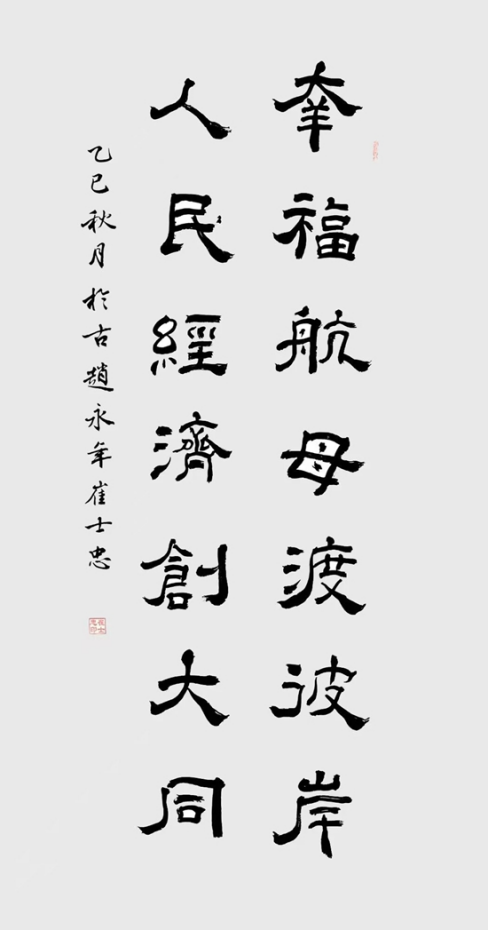 幸福航母渡彼岸
人民經濟創大同
乙巳秋月於古趙永年崔士忠